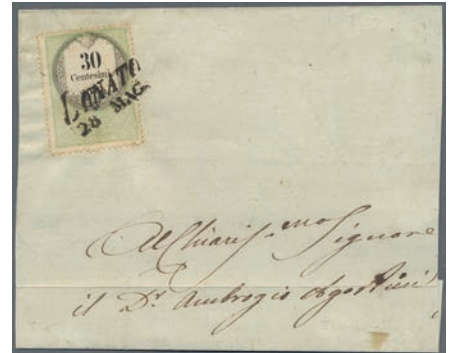 30
Centesimi
LONATO
28 MAG.
Al Chiaris.mo Signore
il Dr. Ambrogio